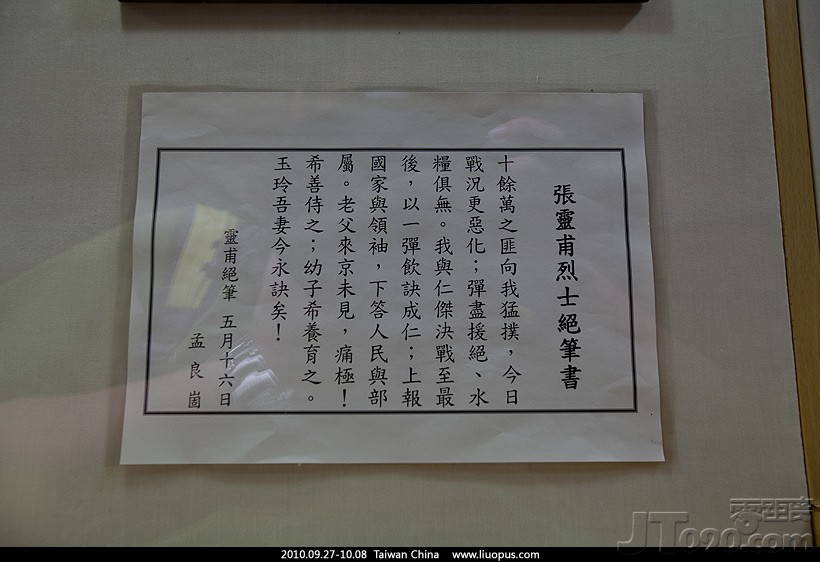 張靈甫烈士絕筆書
十餘萬之匪向我猛撲，今日
戰況更惡化；彈盡援絕、水
糧俱無。我與仁傑決戰至最
後，以一彈飲訣成仁；上報
國家與領袖，下答人民與部
屬。老父來京未見，痛極！
希善侍之；幼子希養育之。
玉玲吾妻今永訣矣！
靈甫絕筆 五月十六日
孟良崮
JT090.com
2010.09.27-10.08 Taiwan China www.liuopus.com